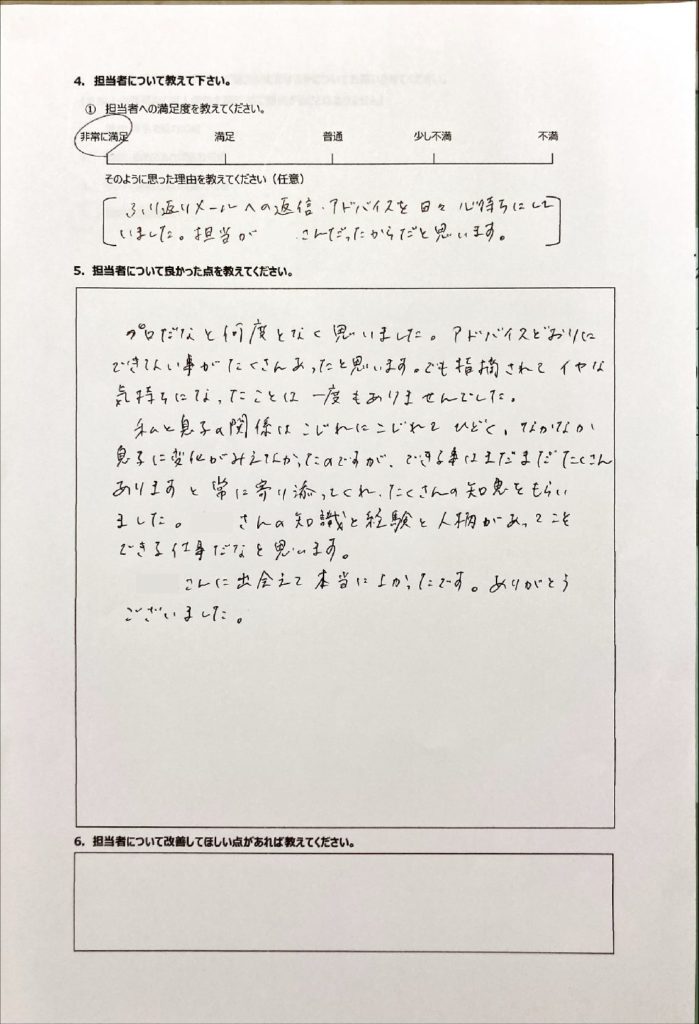 4. 担当者について教えて下さい。
① 担当者への満足度を教えてください。
非常に満足 満足 普通 少し不満 不満
そのように思った理由を教えてください（任意）
ふり返りメールへの返信・アドバイスを日々心待ちにして
いました。担当が さんだったからだと思います。
5. 担当者について良かった点を教えてください。
プロだなと何度となく思いました。アドバイスどおりに
できてない事がたくさんあったと思います。でも指摘されてイヤな
気持ちになったことは一度もありませんでした。
私と息子の関係はこじれにこじれてひどく、なかなか
息子に変化がみえなかったのですが、できる事はまだまだたくさん
ありますと常に寄り添ってくれ、たくさんの知恵をもらい
ました。 さんの知識と経験と人柄があってこそ
できる仕事だなと思います。
さんに出会えて本当によかったです。ありがとう
ございました。
6. 担当者について改善してほしい点があれば教えてください。